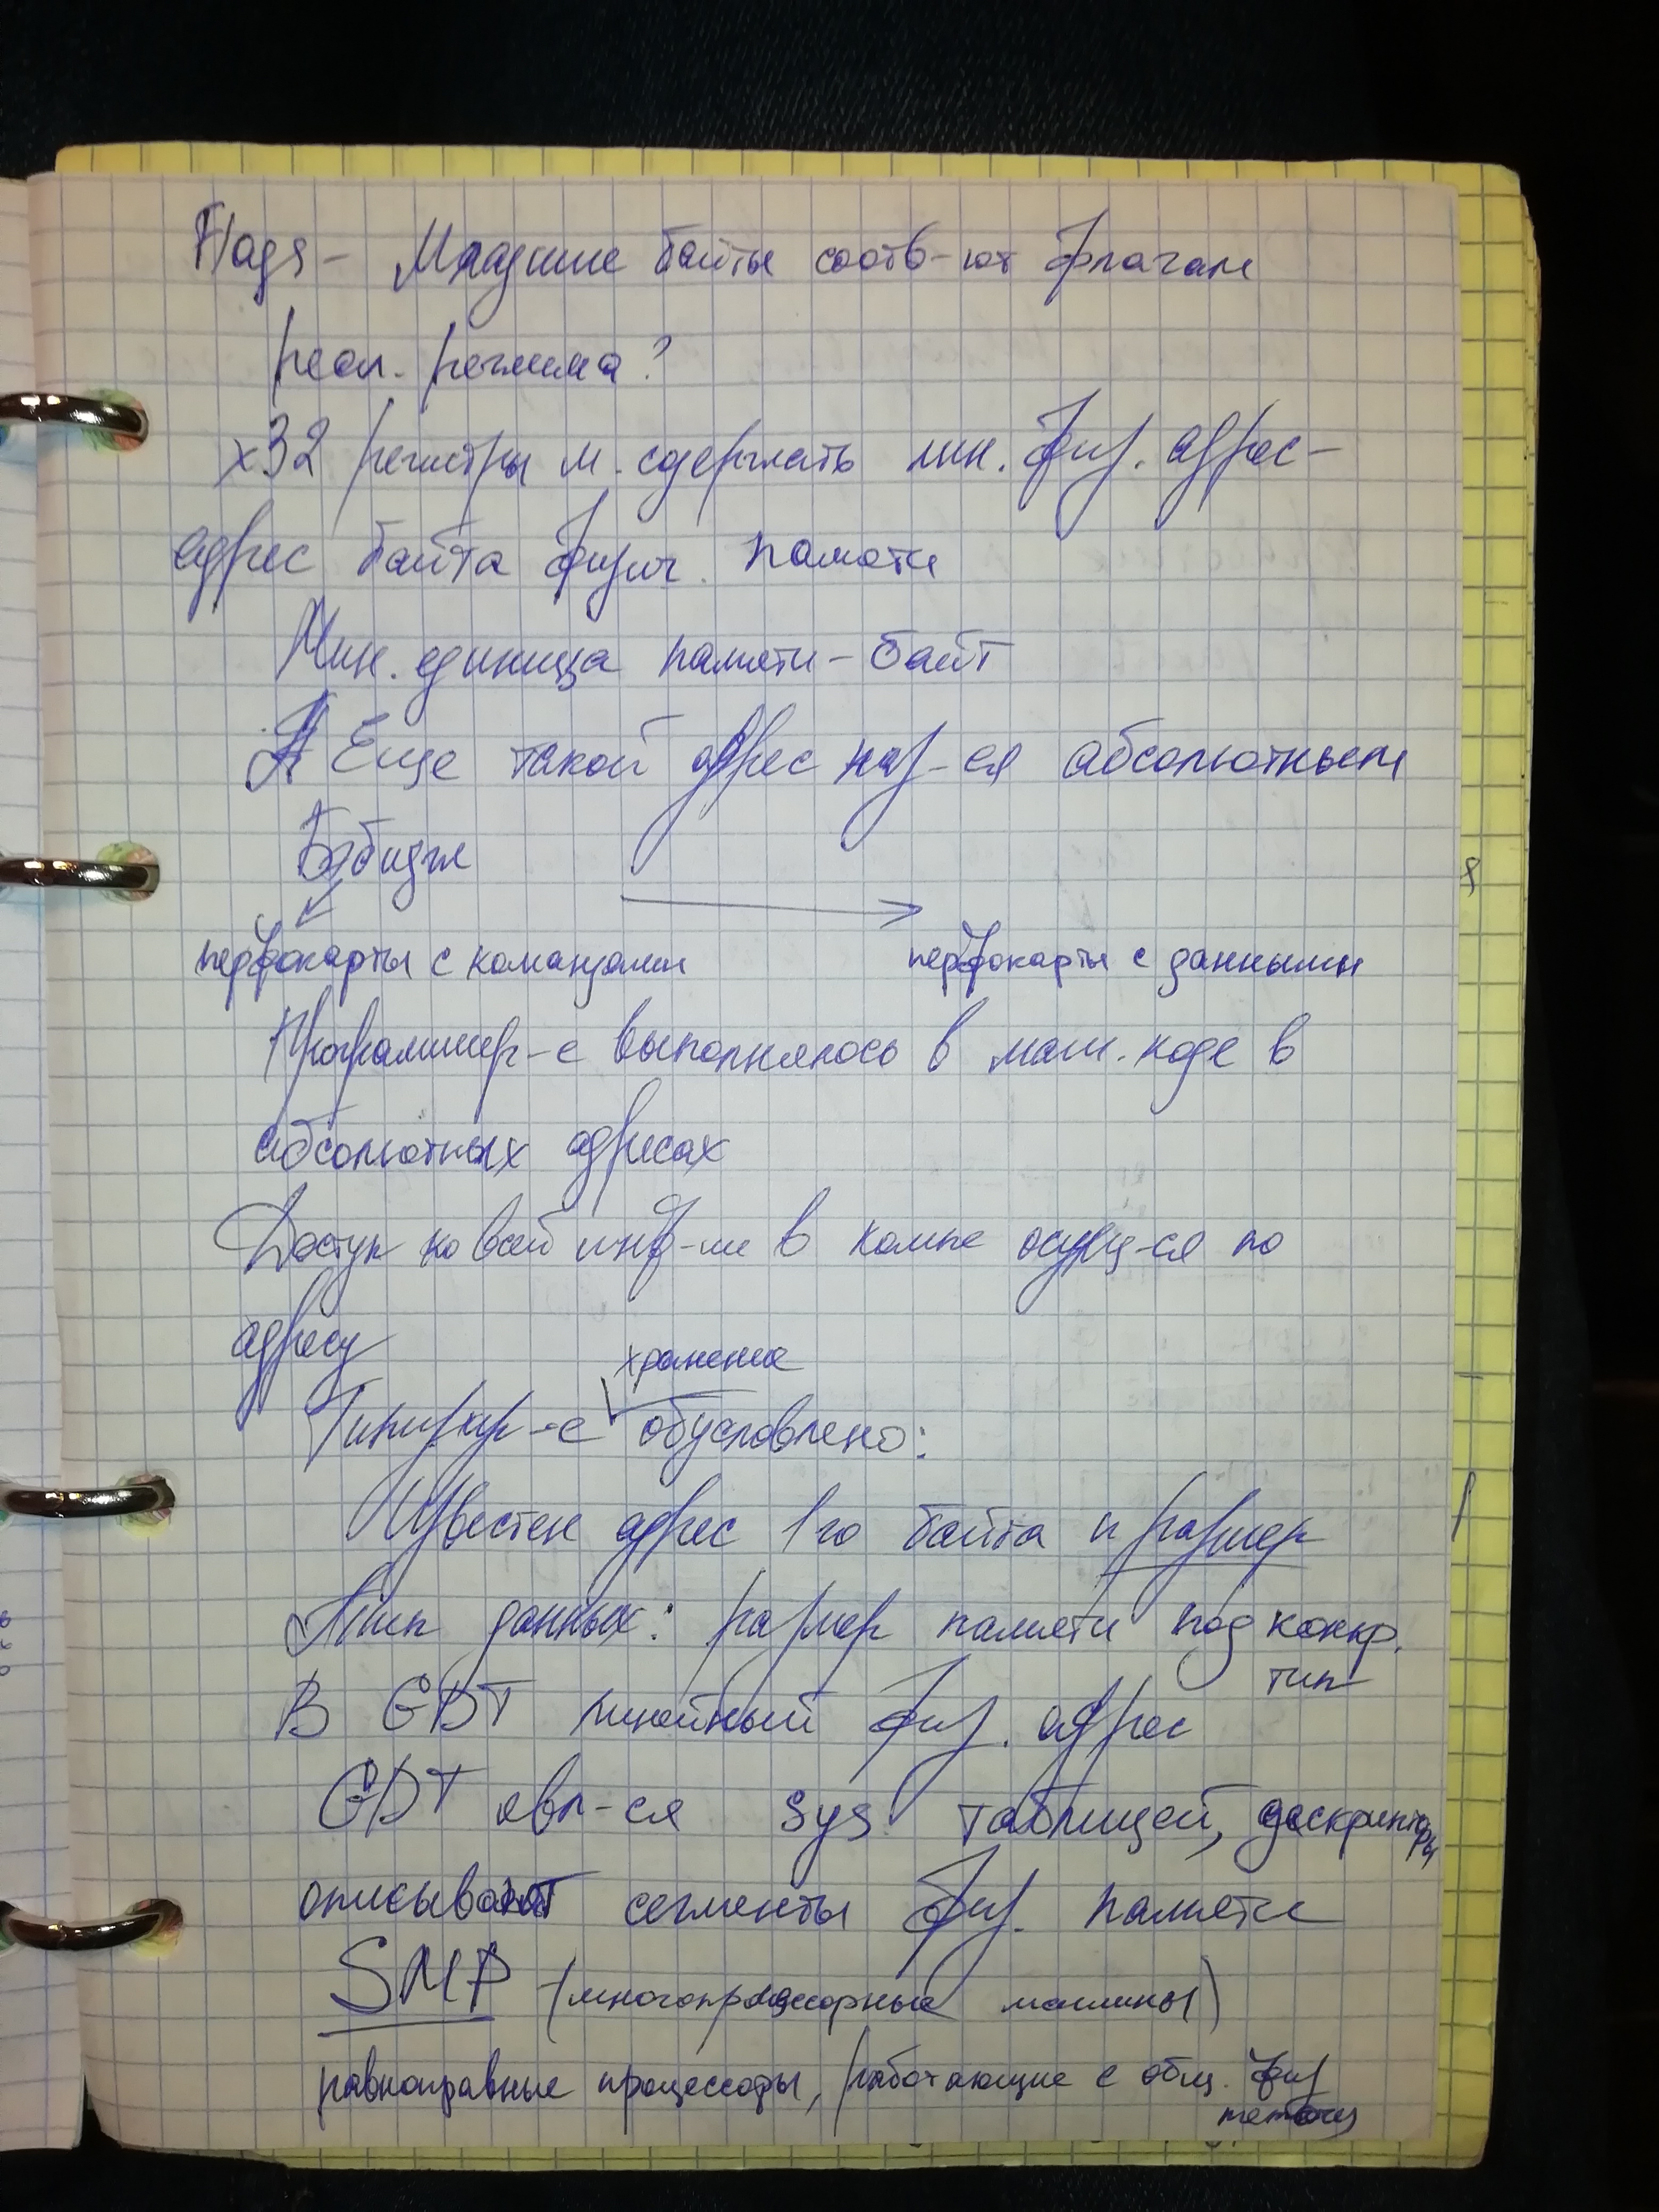 Flags - Младшие байты соотв-ют флагам
реал. режима?
x32 регистры м. содержать лин. физ. адрес-
адрес байта физич. памяти
Мин. единица памяти - байт
Еще такой адрес наз-ся абсолютным
Бэбидж
перфокарты с командами перфокарты с данными
Программир-е выполнялось в маш. коде в
абсолютных адресах
Доступ ко всей инф-ии в компе осущ-ся по
адресу
хранение
Типизир-е обусловлено:
Известен адрес 1го байта и размер
Тип данных: размер памяти под конкр.
тип
В GDT линейный физ. адрес
GDT явл-ся sys таблицей, дескрипторы
описывают сегменты физ. памяти
SMP - (многопроцессорные машины)
равноправные процессоры, работающие с общ. физ